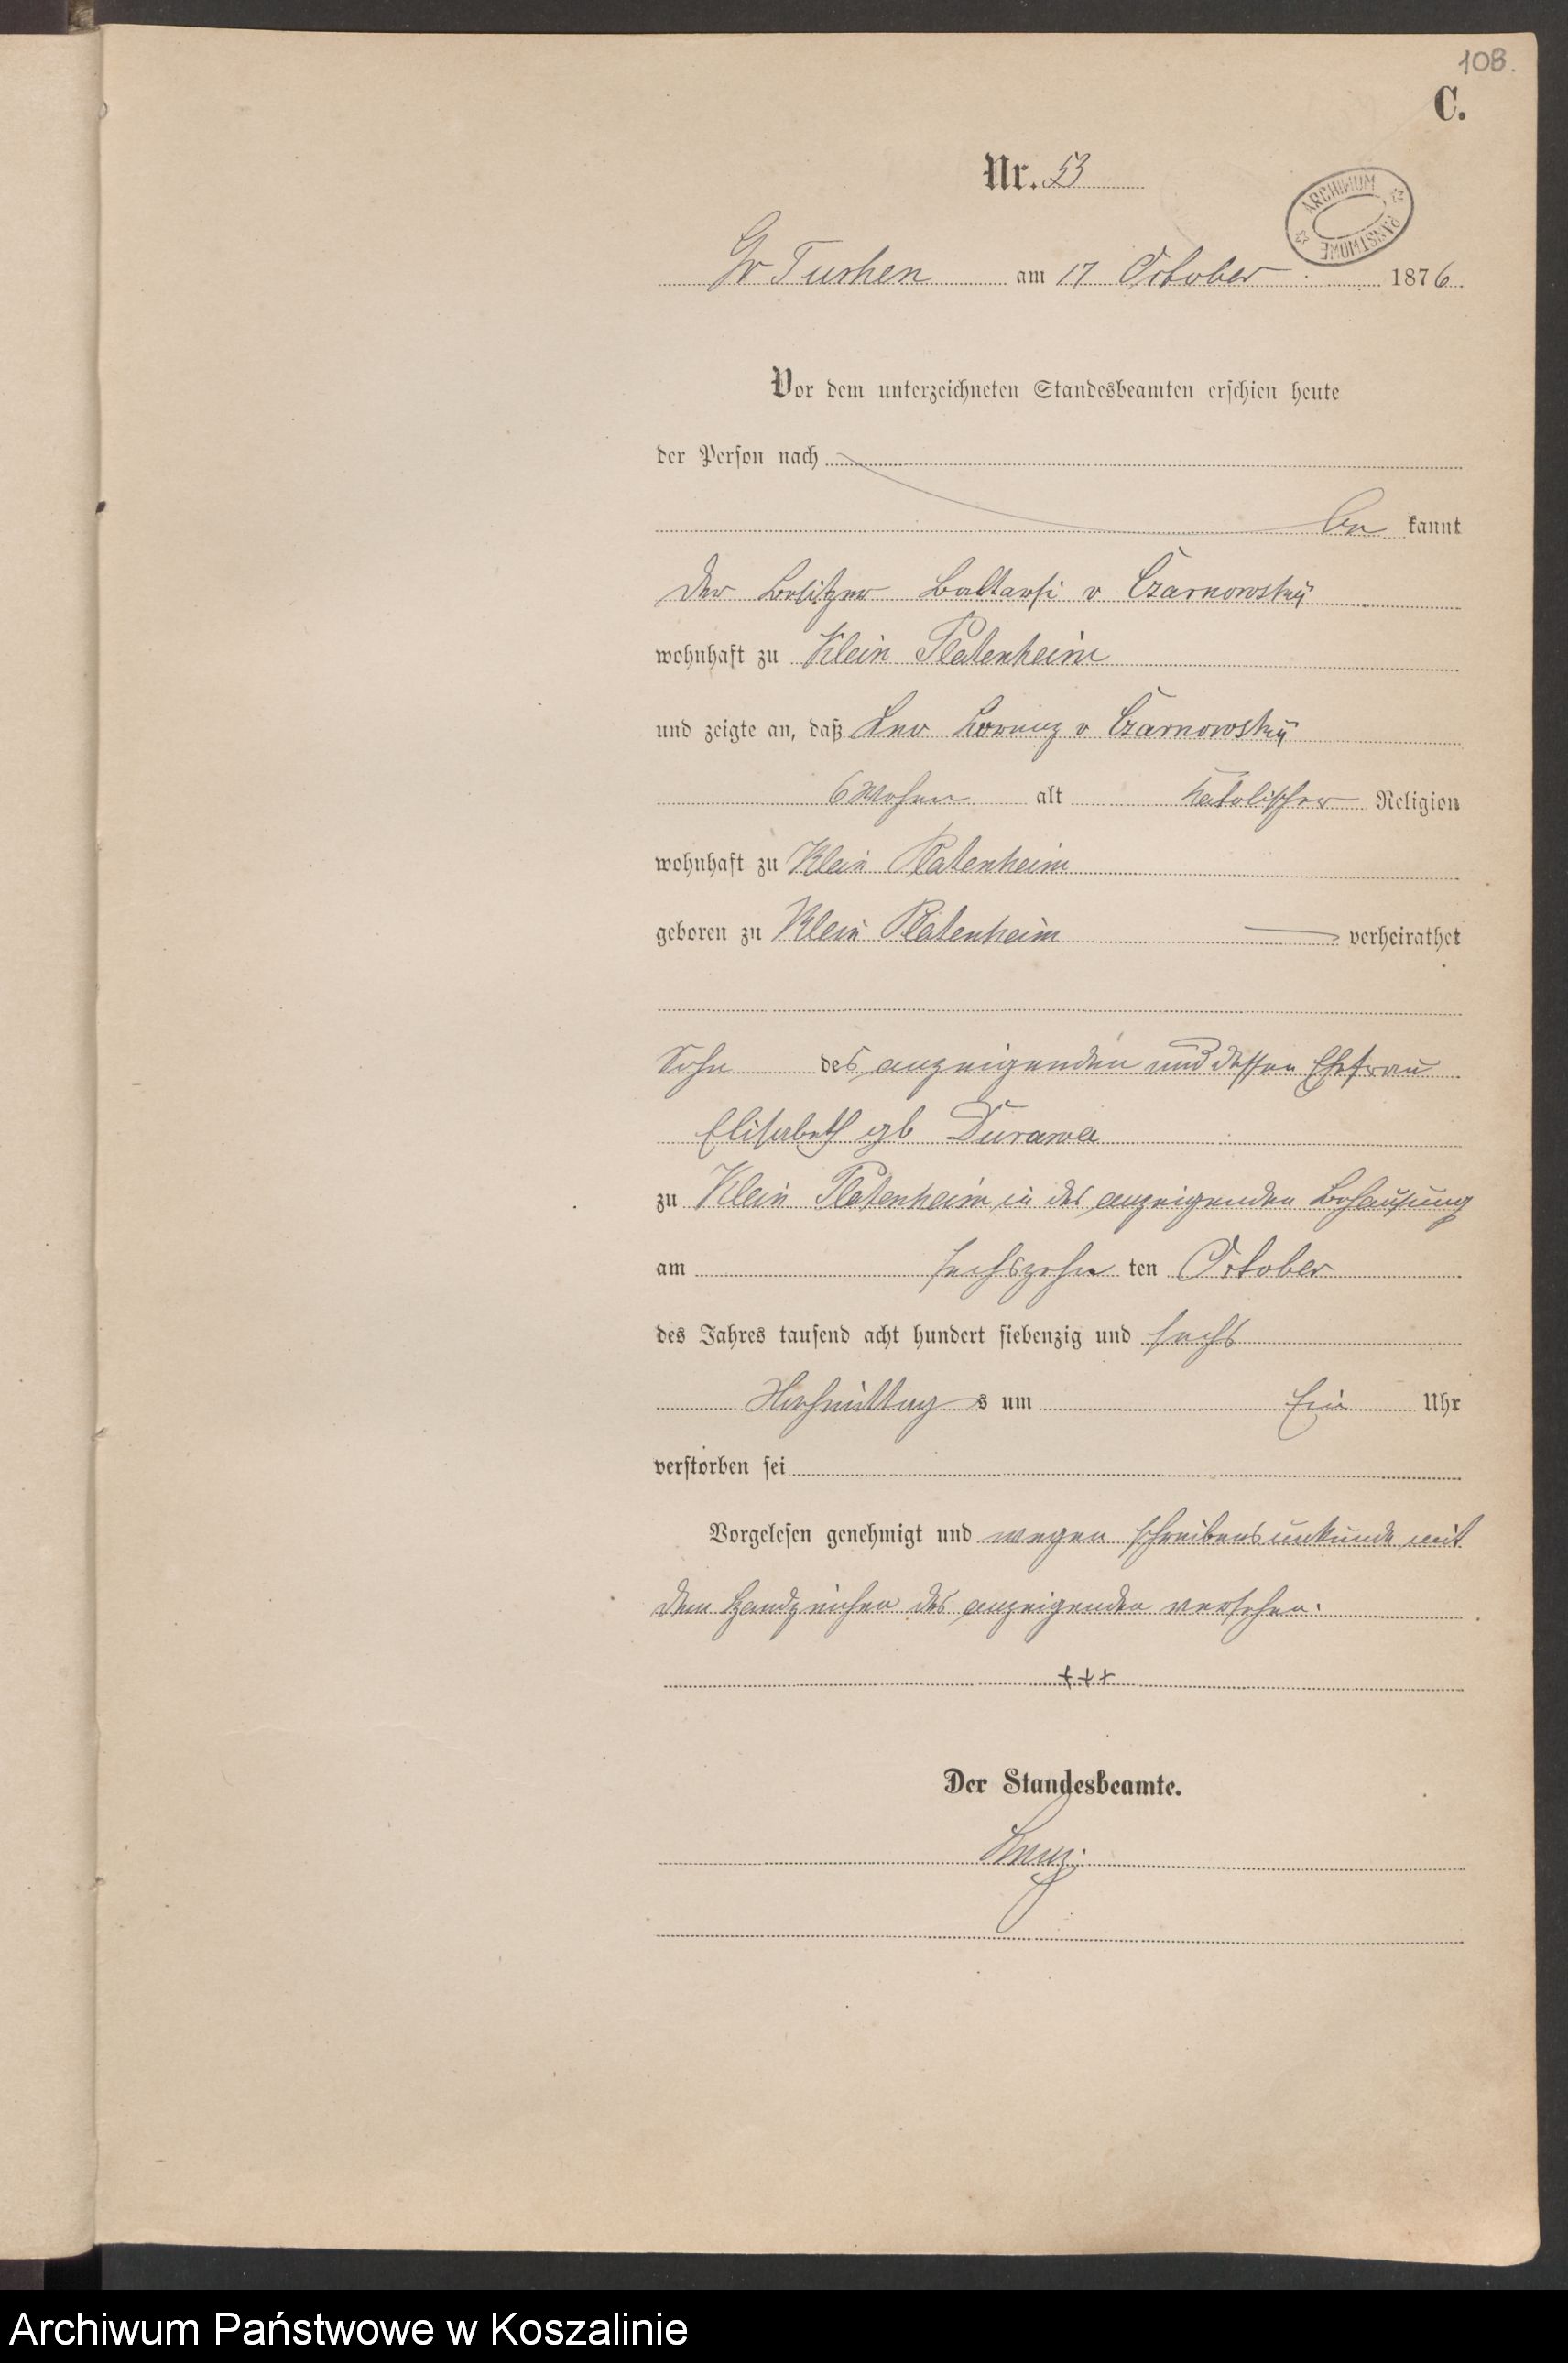 108.
C.
Nr. 53
ARCHIWUM PAŃSTWOWE
Gr Tuchen am 17 October 1876
Vor dem unterzeichneten Standesbeamten erschien heute
der Person nach
be kannt
der Besitzer v Czarnowsky
wohnhaft zu Klein Platenheim
und zeigte an, daß Leo Lorenz v Czarnowsky
6 Wochen alt katolischer Religion
wohnhaft zu Klein Platenheim
geboren zu Klein Platenheim verheirathet
Sohn des anzeigenden und dessen Ehefrau
Elisabeth gb Durawa
zu Klein Platenheim in des anzeigenden Behausung
am sechszehn ten October
des Jahres tausend acht hundert siebenzig und sechs
Nachmittag s um Ein Uhr
verstorben sei
Vorgelesen genehmigt und wegen schreibensunkunde mit
dem Handzeichen des anzeigenden versehen.
+++
Der Standesbeamte.
Archiwum Państwowe w Koszalinie